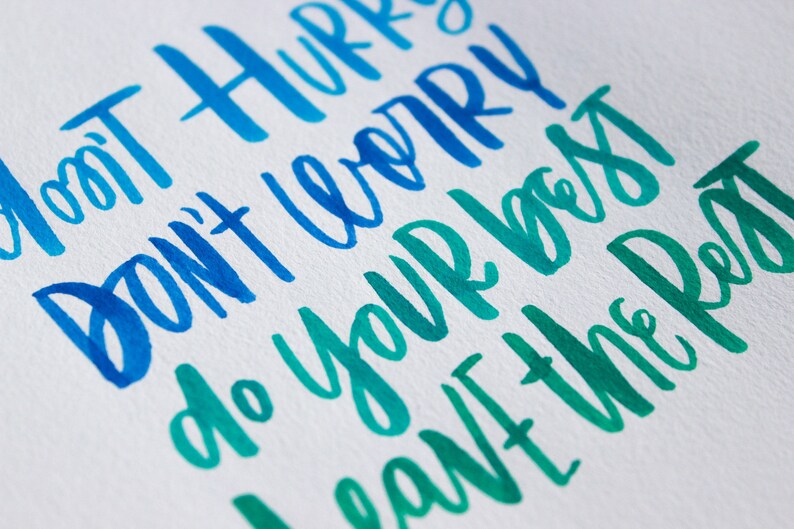 don't Hurry
DON'T WORRY
do YOUR bEST
Leave the Rest